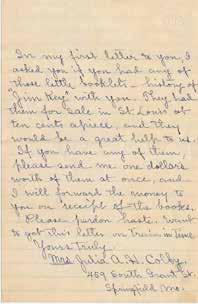 In my first letter to you, I
asked you if you had any of
those little booklets - history of
"Jim Key" with you. They had
them for sale in St. Louis at
ten cents apiece, and they
would be a great help to us.
If you have any of them,
please send me one dollar's
worth of them at once, and
I will forward the money to
you on receipt of the books.
Please pardon haste. Want
to get this letter on Train in Time
Yours truly
Mrs. Julia A. H. Colby,
459 South Grant St.
Springfield Mo.